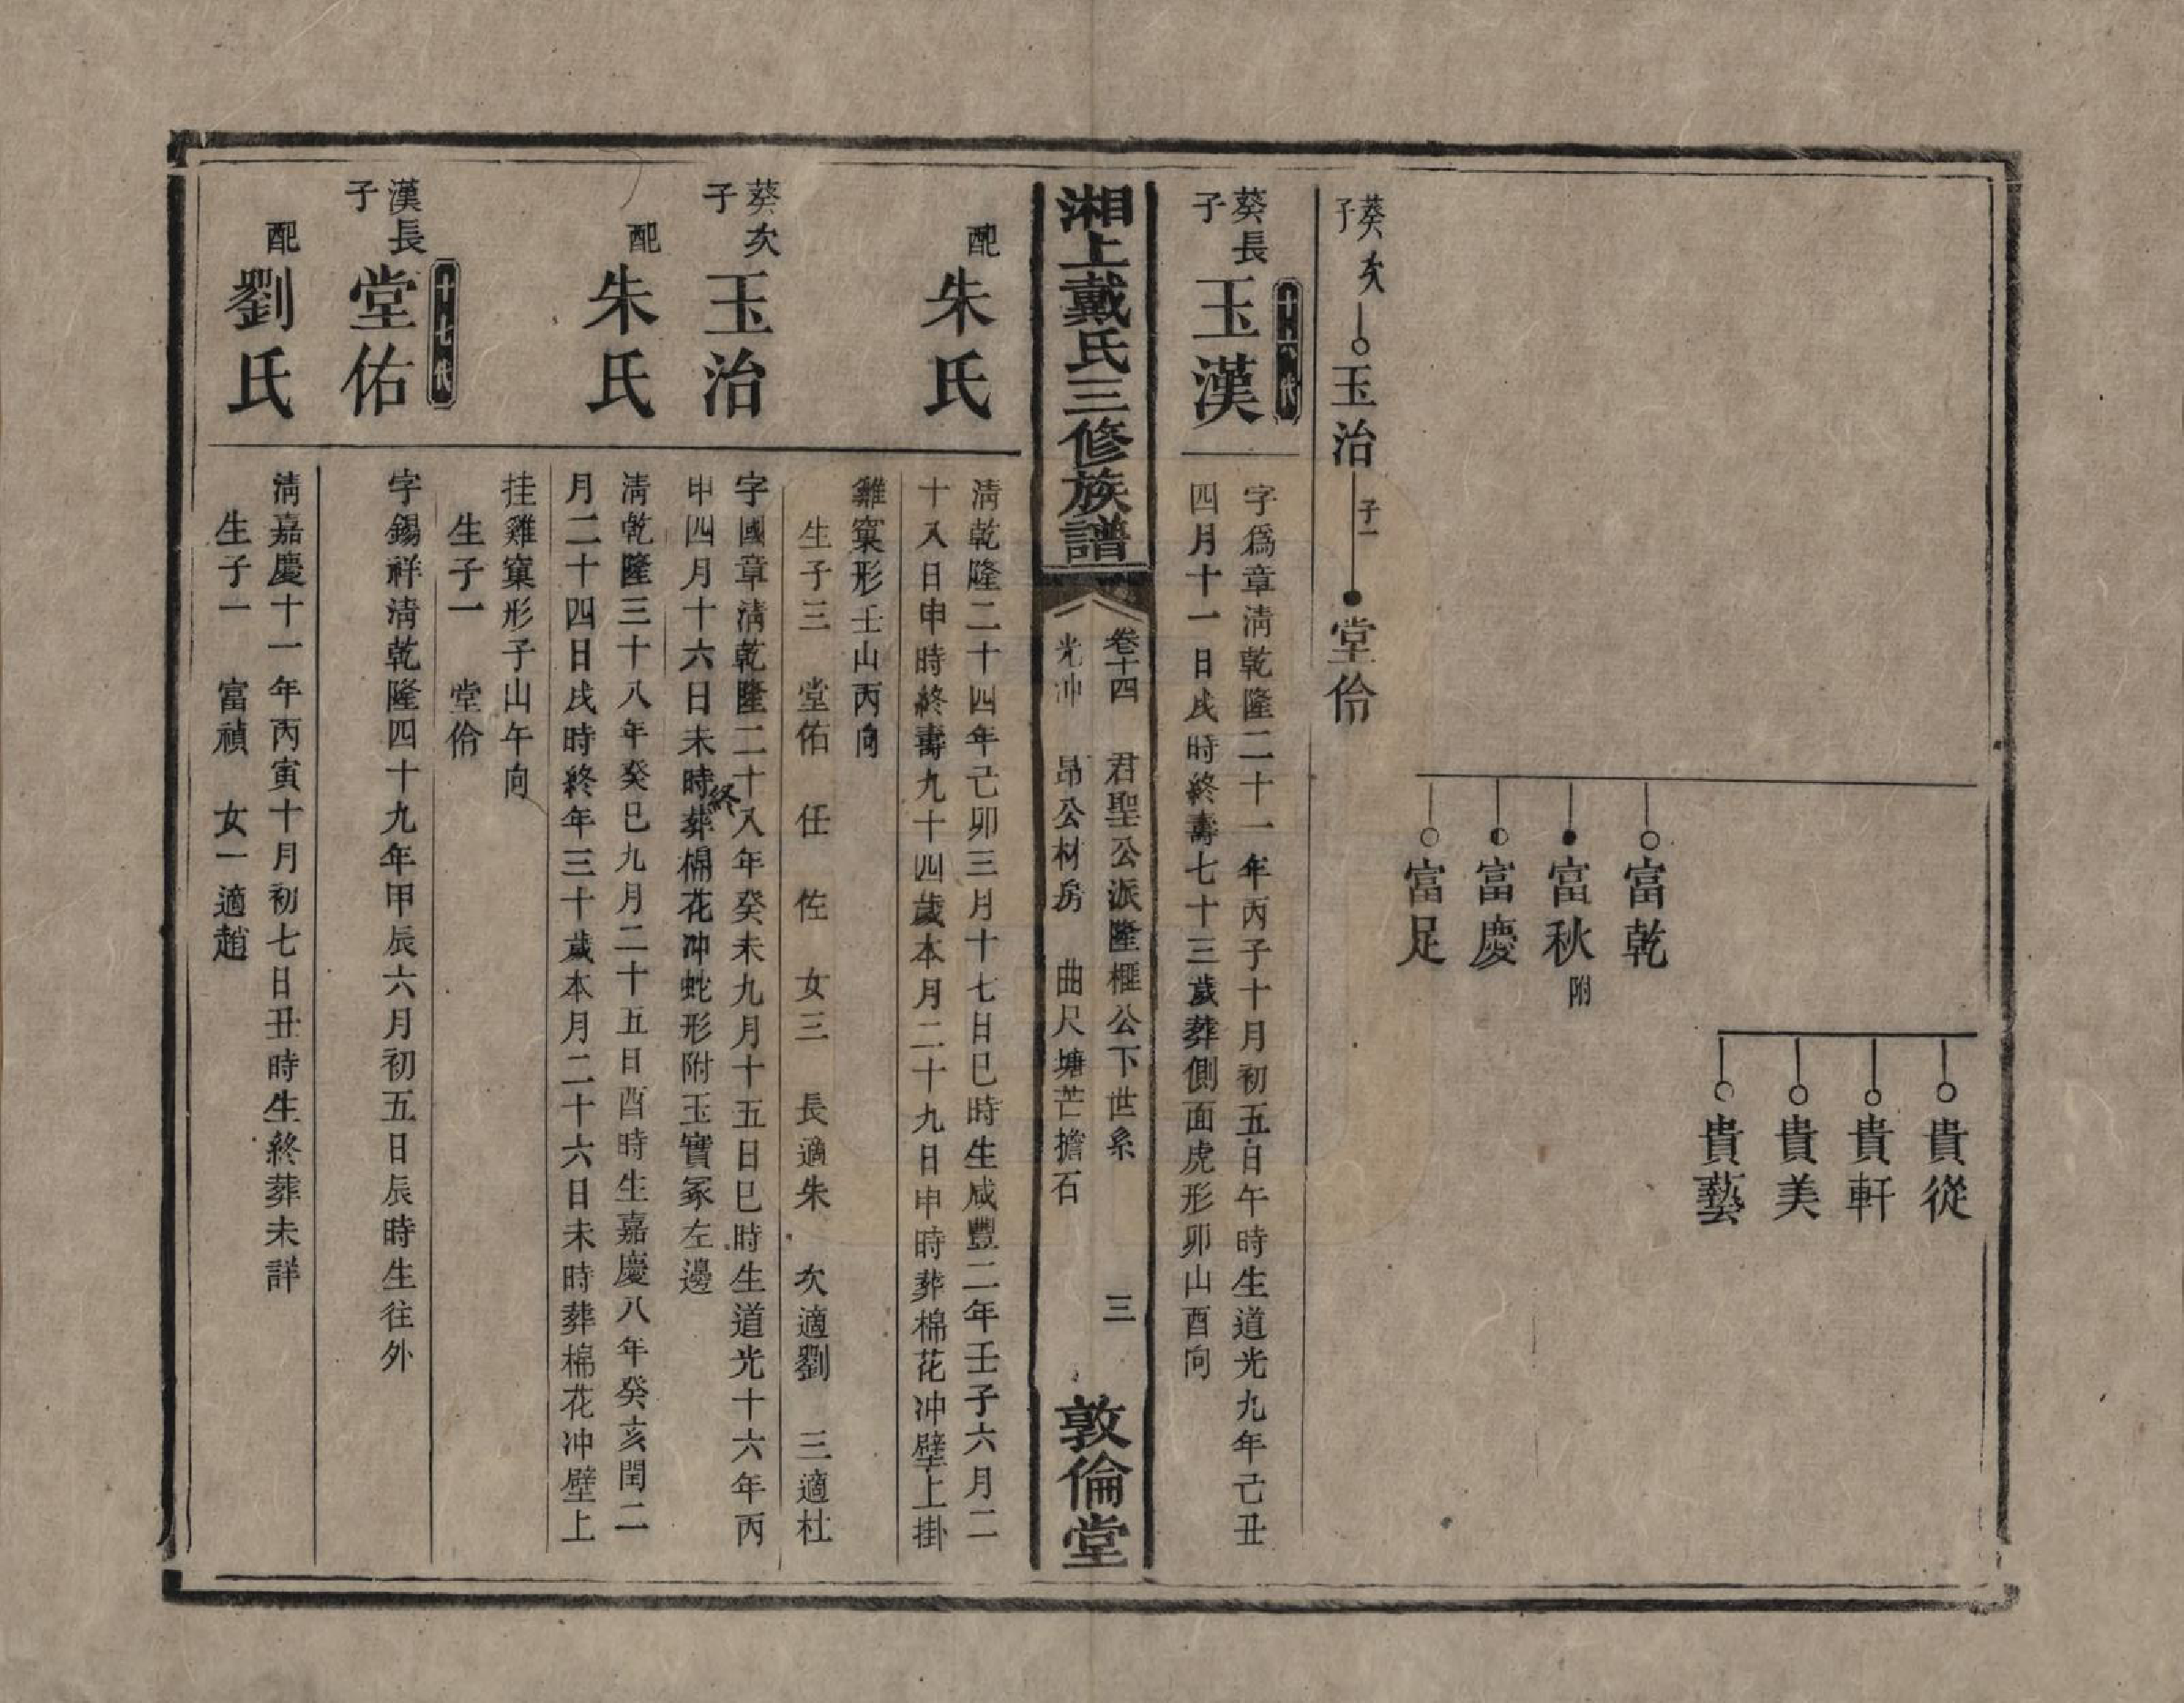 貴從
貴軒
貴美
貴藝
富乾
富秋附
富慶
富足
葵次子
玉治
子一
堂伶
十六代
葵長子
玉漢
字爲章淸乾隆二十一年丙子十月初五日午時生道光九年己丑
四月十一日戌時終壽七十三歲葬側面虎形卯山酉向
湘上戴氏三修族譜
卷十四 君聖公派隆榧公下世系 三
光冲 昂公材房 曲尺塘芒擔石
敦倫堂
配
朱氏
淸乾隆二十四年己卯三月十七日巳時生咸豐二年壬子六月二
十八日申時終壽九十四歲本月二十九日申時葬棉花冲壁上掛
雞窠形壬山丙向
生子三 堂佑 任 佐 女三 長適朱 次適劉 三適杜
葵次子
玉治
字國章淸乾隆二十八年癸未九月十五日巳時生道光十六年丙
申四月十六日未時終葬棉花冲蛇形附玉寶冢左邊
配
朱氏
淸乾隆三十八年癸巳九月二十五日酉時生嘉慶八年癸亥閏二
月二十四日戌時終年三十歲本月二十六日未時葬棉花冲壁上
挂雞窠形子山午向
生子一 堂伶
十七代
漢長子
堂佑
字錫祥淸乾隆四十九年甲辰六月初五日辰時生往外
配
劉氏
淸嘉慶十一年丙寅十月初七日丑時生終葬未詳
生子一 富禎 女一適趙